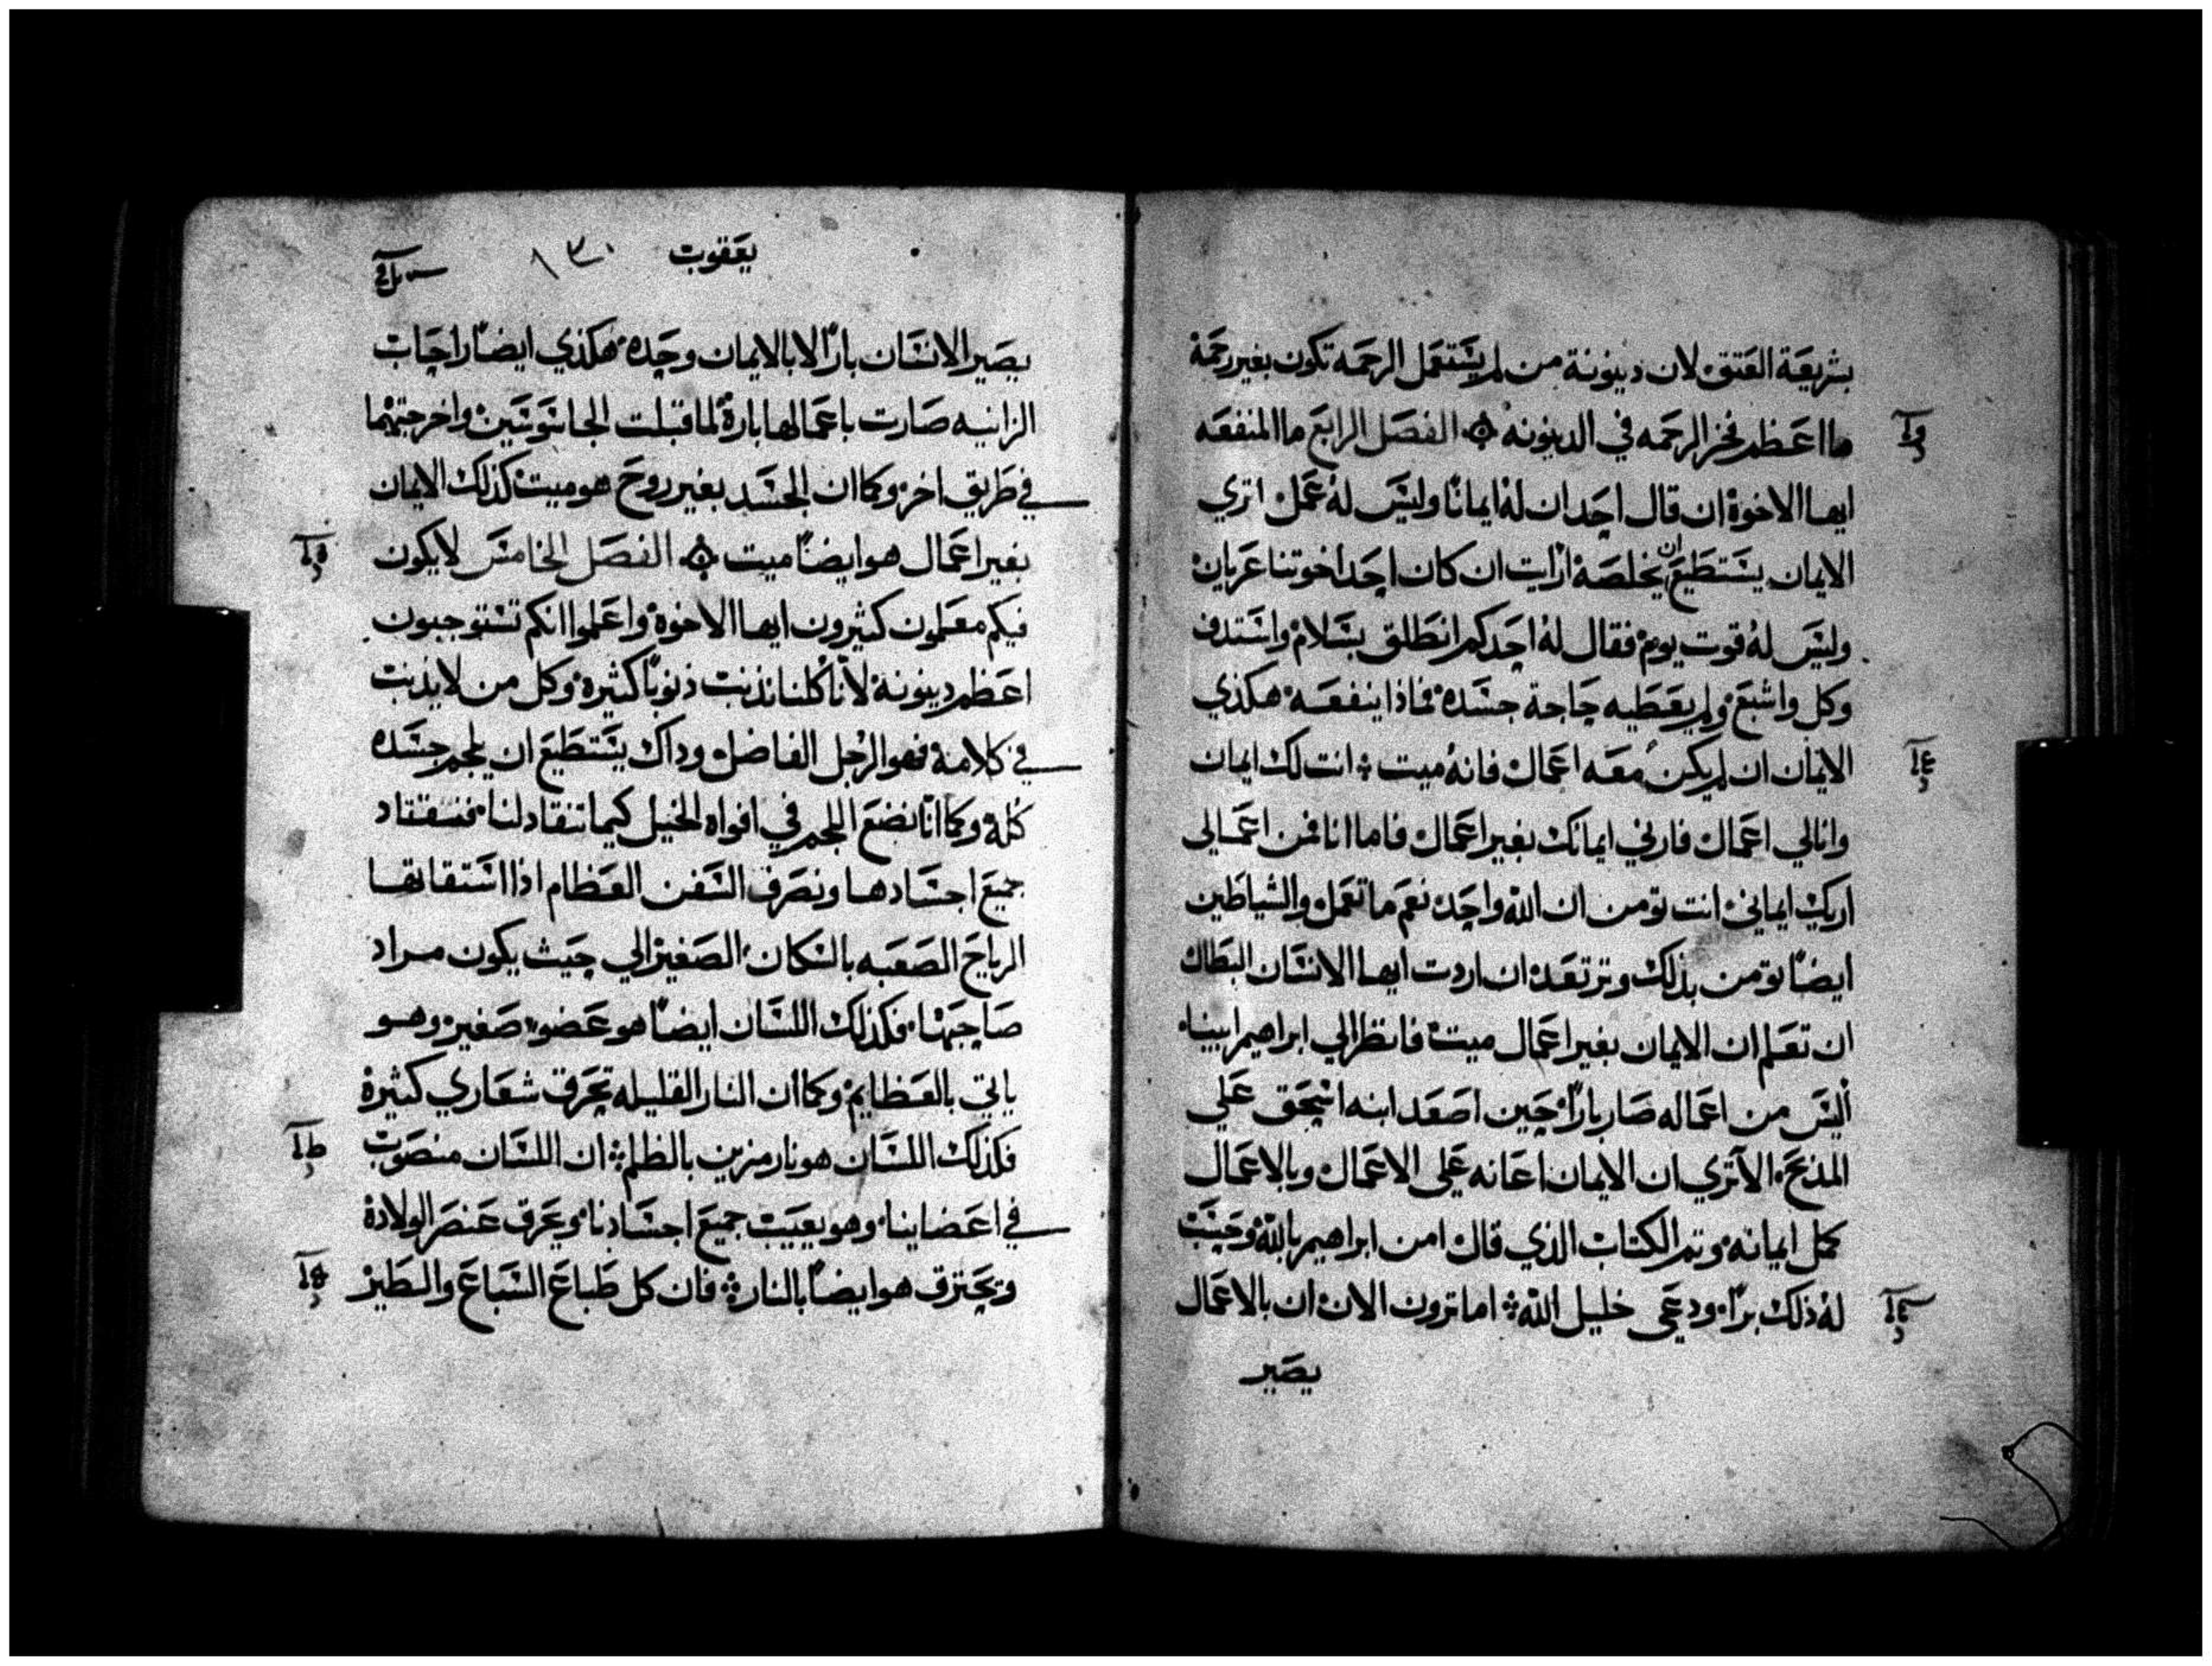 بشريعة العتق لان دينونة من لم يستعمل الرحمه تكون بغير رحمة
ما اعظم فخر الرحمه في الدينونه الفصل الرابع ما المنفعه
ايها الاخوة ان قال احد ان له ايمانا وليس له عمل اتري
الايمان يستطيع ان يخلصه ارايت ان كان احد اخوتنا عريان
وليس له قوت يوم فقال له احدكم انطلق بسلام واستدف
وكل واشبع ولم يعطيه حاجة جسده فماذا ينفعه هكذي
الايمان ان لم يكن معه اعمال فانه ميت انت لك ايمان
وانا لي اعمال فارني ايمانك بغير اعمال فاما انا فمن اعمالي
اريك ايماني انت تومن ان الله واحد نعم ما تعمل والشياطين
ايضا تومن بذلك وترتعد ان اردت ايها الانسان البطال
ان تعلم ان الايمان بغير اعمال ميت فانظر الي ابراهيم ابينا
أليس من اعماله صار بارا حين اصعد ابنه اسحق علي
المذبح الا تري ان الايمان اعانه علي الاعمال وبالاعمال
كمل ايمانه وتم الكتاب الذي قال امن ابراهيم بالله وحسب
له ذلك برا ودعي خليل الله اما ترون الان ان بالاعمال
يصير
يعقوب ١٣٠
يصير الانسان بارا لا بالايمان وحده هكذي ايضا راحاب
الزانيه صارت باعمالها بارة لما قبلت الجاسوسين واخرجتهما
في طريق اخر وكما ان الجسد بغير روح هو ميت كذلك الايمان
بغير اعمال هو ايضا ميت الفصل الخامس لا يكون
فيكم معلمون كثيرون ايها الاخوة واعلموا انكم تستوجبون
اعظم دينونة لأنا كلنا نذنب ذنوبا كثيرة وكل من لا يذنب
في كلامه فهو الرجل الفاضل وذاك يستطيع ان يلجم جسده
كله وكما انا نضع اللجم في افواه الخيل كيما تنقاد لنا فنقتاد
جميع اجسادها ونصرف السفن العظام اذا استقاتها
الرياح الصعبه بالسكان الصغير الي حيث يكون مراد
صاحبها فكذلك اللسان ايضا هو عضو صغير وهو
ياتي بالعظايم وكما ان النار القليله تحرق شعاري كثيرة
فكذلك اللسان هو نار مزين بالظلم ان اللسان منصوب
في اعضاينا وهو يعيب جميع اجسادنا ويحرق عنصر الولادة
وتحترق هو ايضا بالنار فان كل طباع السباع والطير